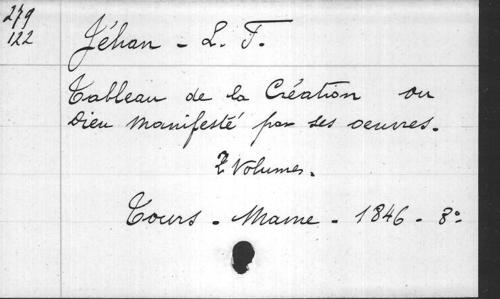 279
122
Jéhan - L. F.
Tableau de la Création ou
Dieu manifesté par ses oeuvres.
2 Volumes.
Tours - Mame - 1846 - 8°